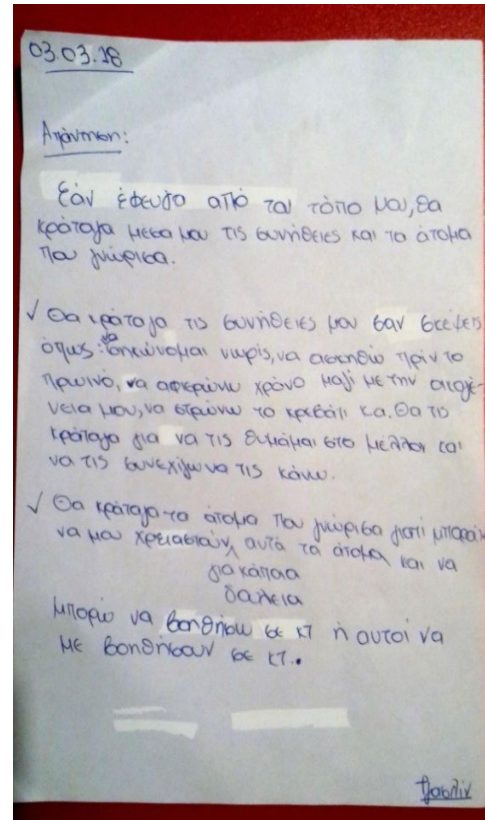 03.03.18
Απάντηση:
Εάν έφευγα από τον τόπο μου, θα
κράταγα μέσα μου τις συνήθειες και τα άτομα
που γνώρισα.
✓ Θα κράταγα τις συνήθειες μου σαν σκέψεις
όπως: να σηκώνομαι νωρίς, να ασκηθώ πρίν το
πρωινό, να αφιερώνω χρόνο μαζί με την οικογέ-
νεια μου, να στρώνω το κρεβάτι κα. Θα τις
κράταγα για να τις θυμάμαι στο μέλλον και
να τις συνεχίζω να τις κάνω.
✓ Θα κράταγα τα άτομα που γνώρισα γιατί μπορεί
να μου χρειαστούν αυτά τα άτομα και να
για κάποια
δουλεια
μπορώ να βοηθήσω σε κτ ή αυτοί να
με βοηθήσουν σε κτ..